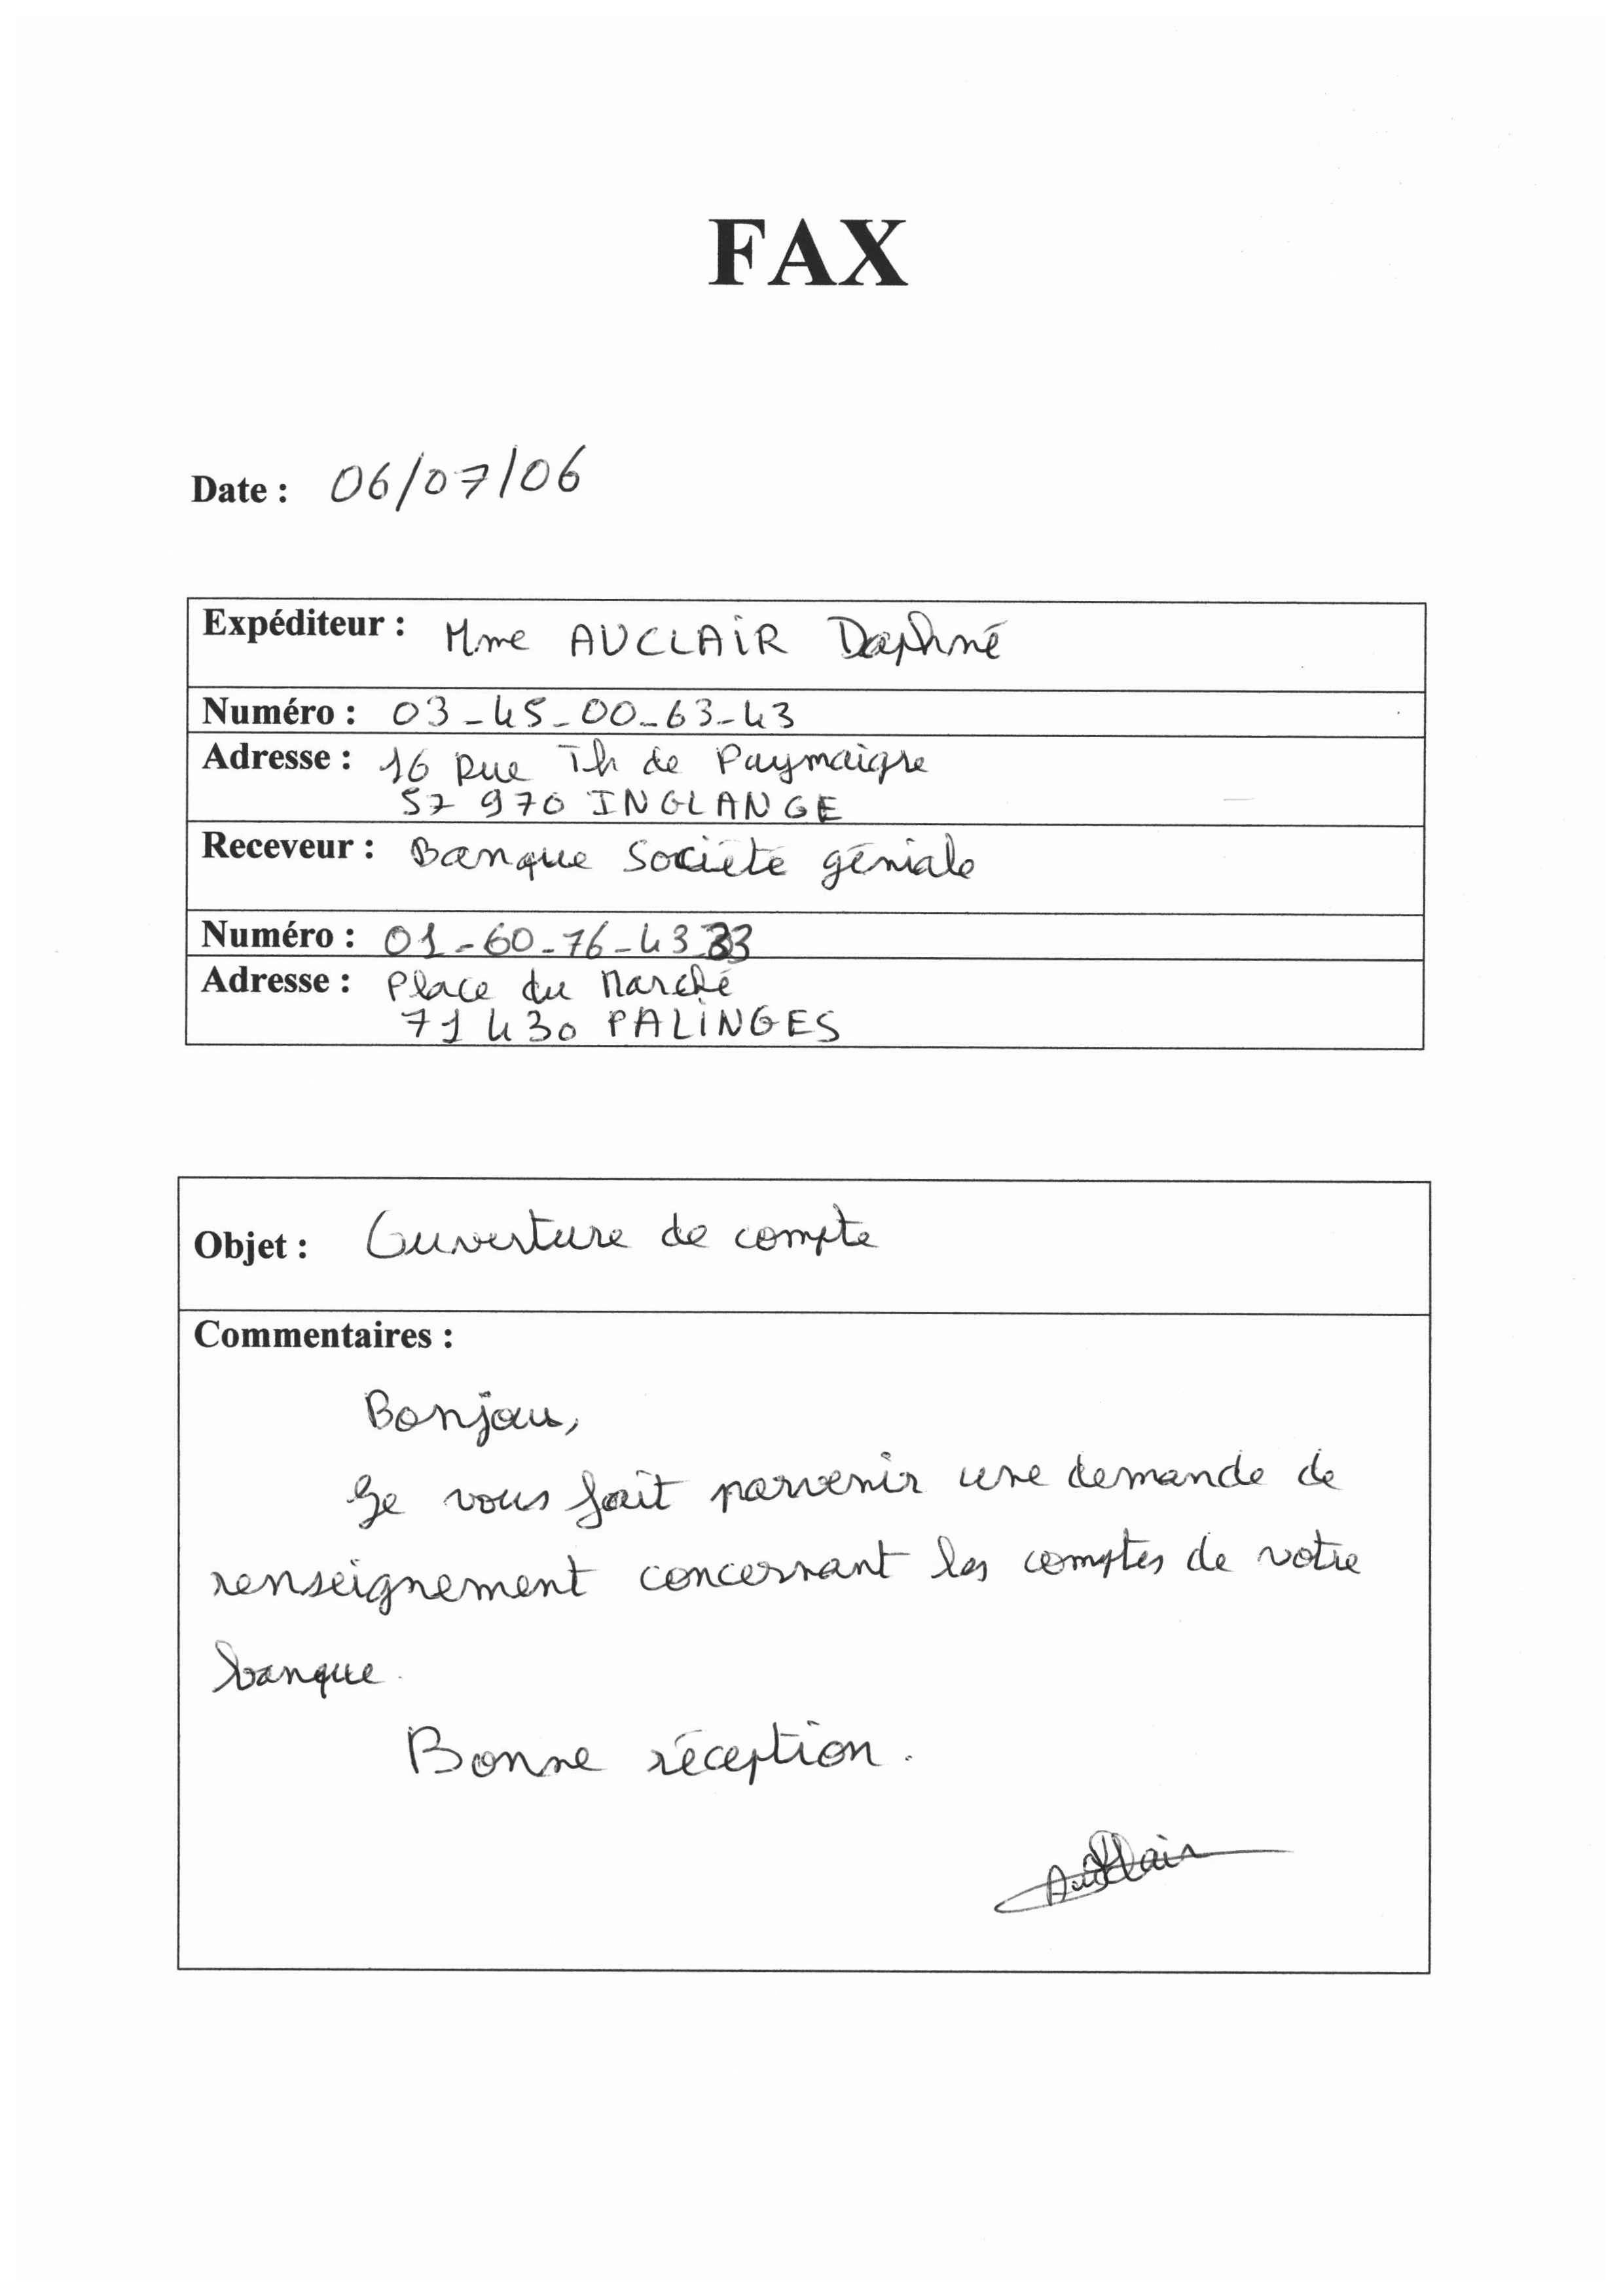 FAX
Date : 06/07/06
Expéditeur : Mme AUCLAIR Daphné
Numéro : 03-45-00-63-43
Adresse : 16 Rue Th de Puymaigre
57 970 INGLANGE
Receveur : Banque Société géniale
Numéro : 01-60-76-43 33
Adresse : Place du Marché
71 430 PALINGES
Objet : Ouverture de compte
Commentaires :
Bonjour,
Je vous fait parvenir une demande de
renseignement concernant les comptes de votre
banque.
Bonne réception.
Auclair